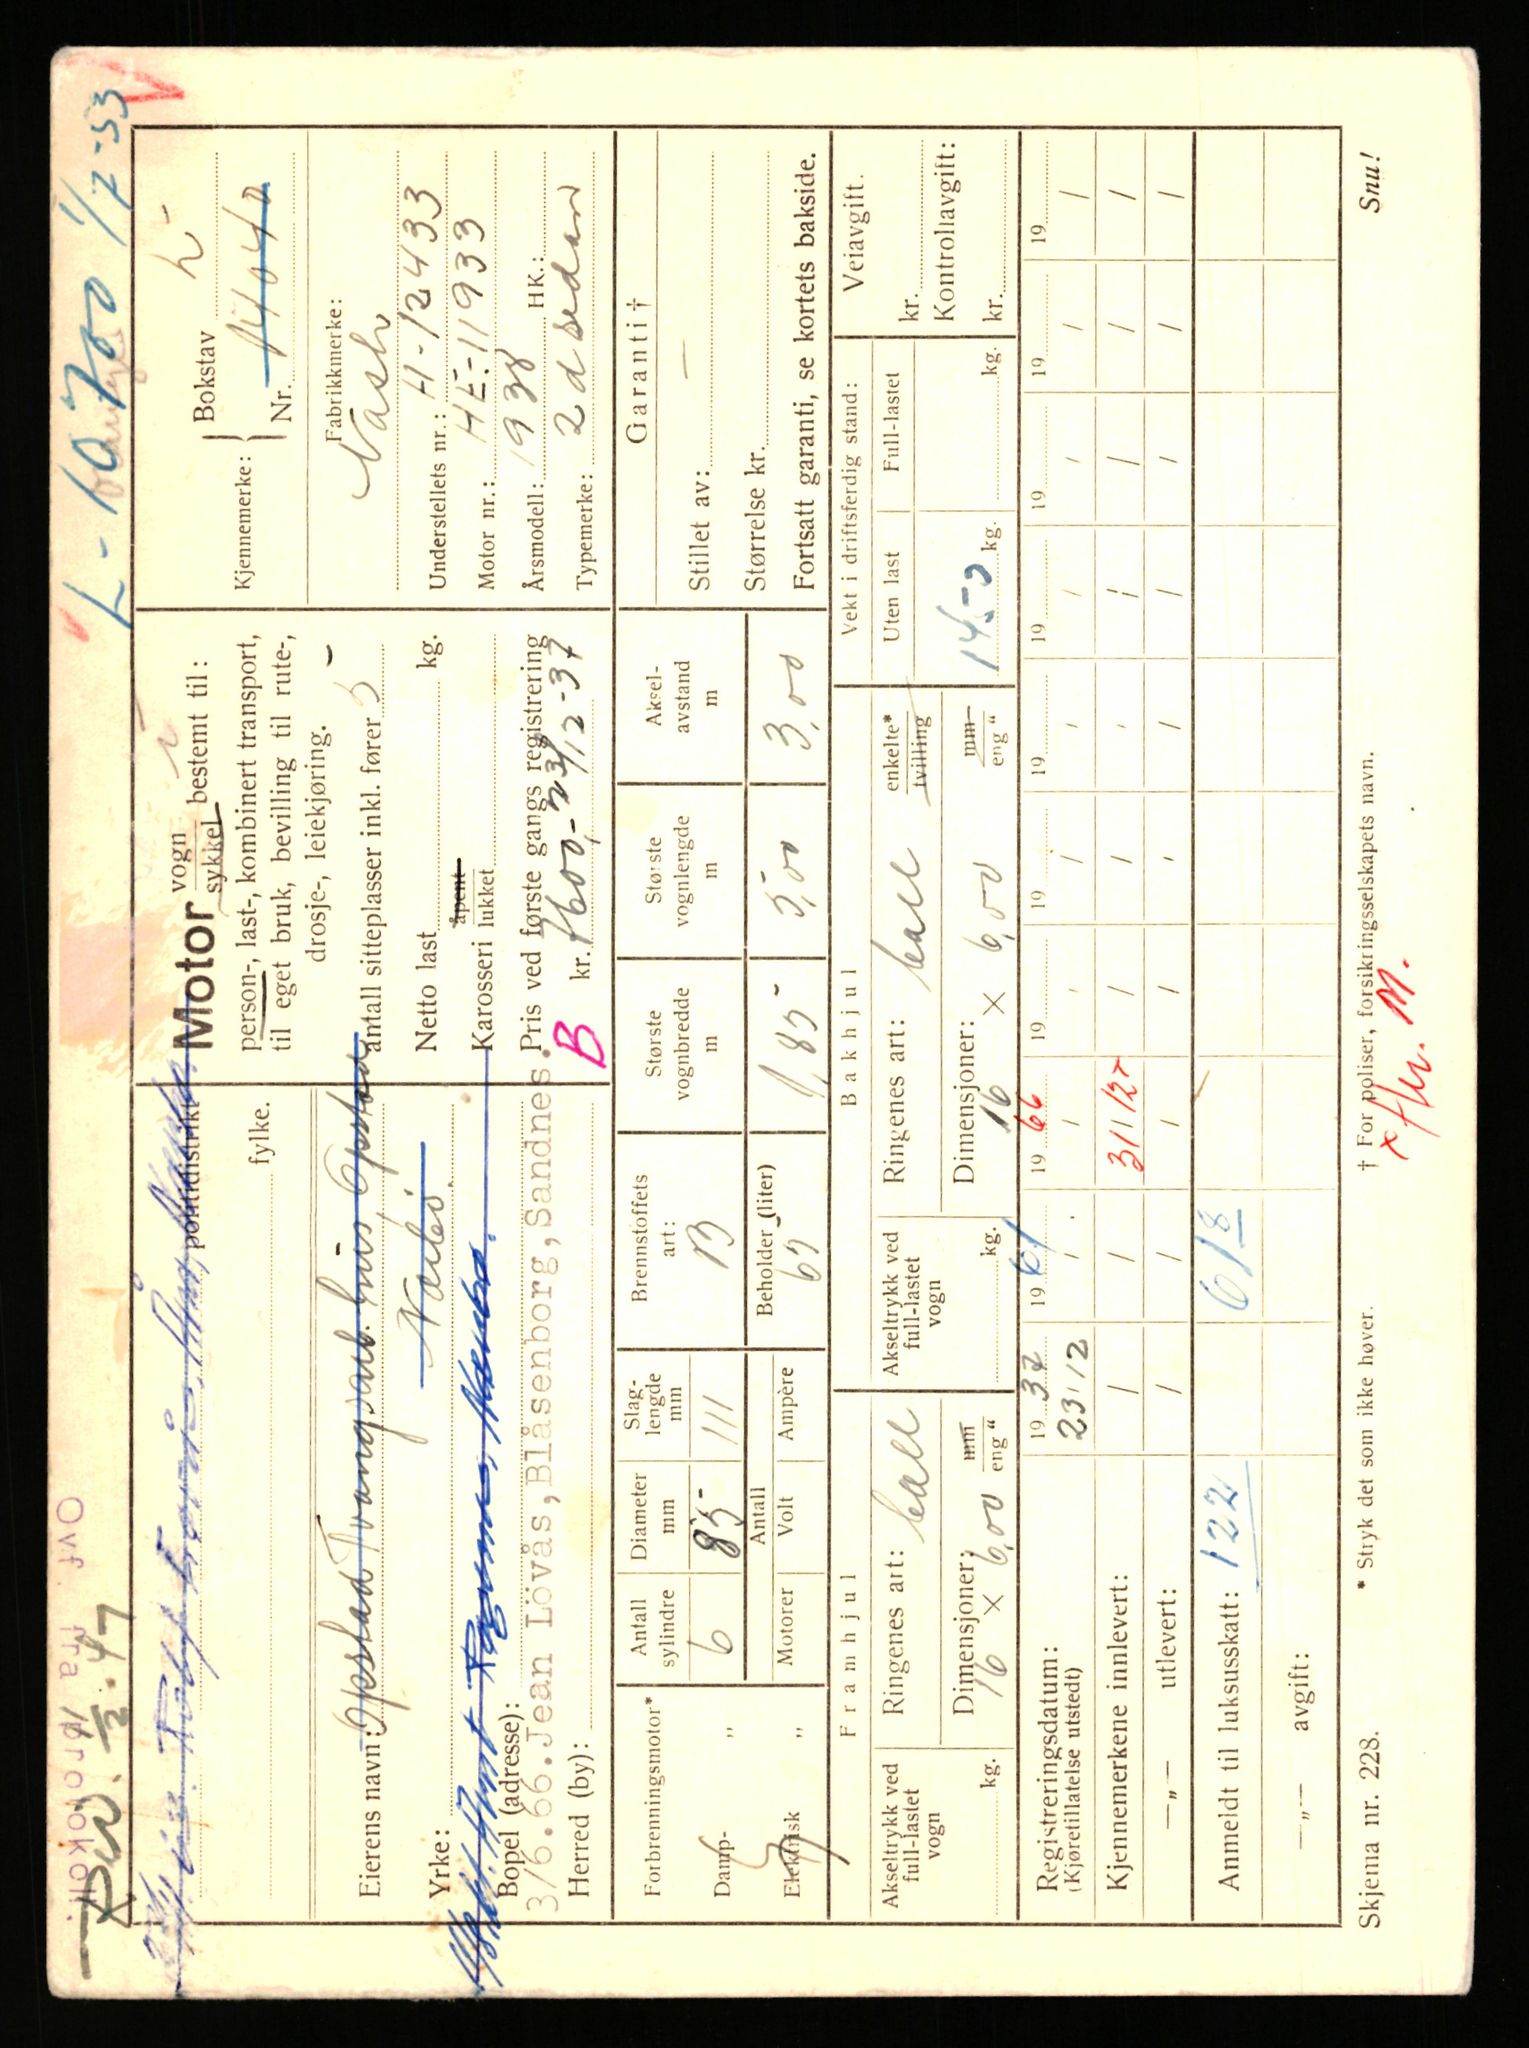 Ovf. fra protokoll.
L- 60700 1/7-53
politidistrikt
fylke.
Motor vogn
sykkel bestemt til:
person-, last-, kombinert transport,
til eget bruk, bevilling til rute-,
drosje-, leiekjøring.
Kjennemerke: { Bokstav L-
Nr. 14040
Eierens navn: Opstad Tvangsarb. hus, Opstad
Nærbø.
antall sitteplasser inkl. fører 5
Netto last kg.
Karosseri åpent
lukket
Pris ved første gangs registrering
kr. 7600,- 23/12-37
B
Fabrikkmerke:
Nash
Understellets nr.: H-12433
Motor nr.: HE-11933
Årsmodell: 1938 HK.:
Typemerke: 2 d sedan
Yrke:
Bopel (adresse):
3/6.66.Jean Lövås,Blåsenborg,Sandnes.
Herred (by):
Forbrenningsmotor*
Damp- „
Elektrisk „
Antall sylindre 6
Diameter mm 85
Slaglengde mm 111
Brennstoffets art: B
Antall
Motorer Volt Ampère
Beholder (liter)
Største vognbredde m 1,85
Største vognlengde m 5,00
Akselavstand m 3,00
Garanti †
Stillet av: —
Størrelse kr.
Fortsatt garanti, se kortets bakside.
Framhjul
Akseltrykk ved full-lastet vogn kg.
Ringenes art:
Dimensjoner: mm
16 × 6,00 eng “
Bakhjul
Akseltrykk ved full-lastet vogn kg.
Ringenes art: enkelte*
tvilling
Dimensjoner: mm
16 × 6,00 eng “
Vekt i driftsferdig stand:
Uten last Full-lastet
1450 kg. kg.
Veiavgift.
kr.
Kontrollavgift:
kr.
Registreringsdatum: 19 37 19 61 19 66 19 19 19 19 19 19 19
(Kjøretillatelse utstedt) 23/12 / / / / / / / / /
Kjennemerkene innlevert: / / 31/12 / / / / / / /
—„— utlevert: / / / / / / / / / /
Anmeldt til luksusskatt: 122 618
—„— avgift:
Skjema nr. 228. * Stryk det som ikke høver. † For poliser, forsikringsselskapets navn. Snu!